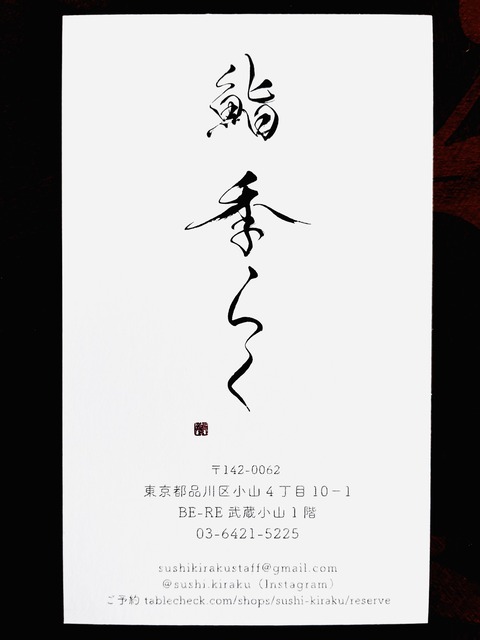 鮨
季らく
〒142-0062
東京都品川区小山4丁目10-1
BE-RE 武蔵小山1階
03-6421-5225
sushikirakustaff@gmail.com
@sushi.kiraku (Instagram)
ご予約 tablecheck.com/shops/sushi-kiraku/reserve